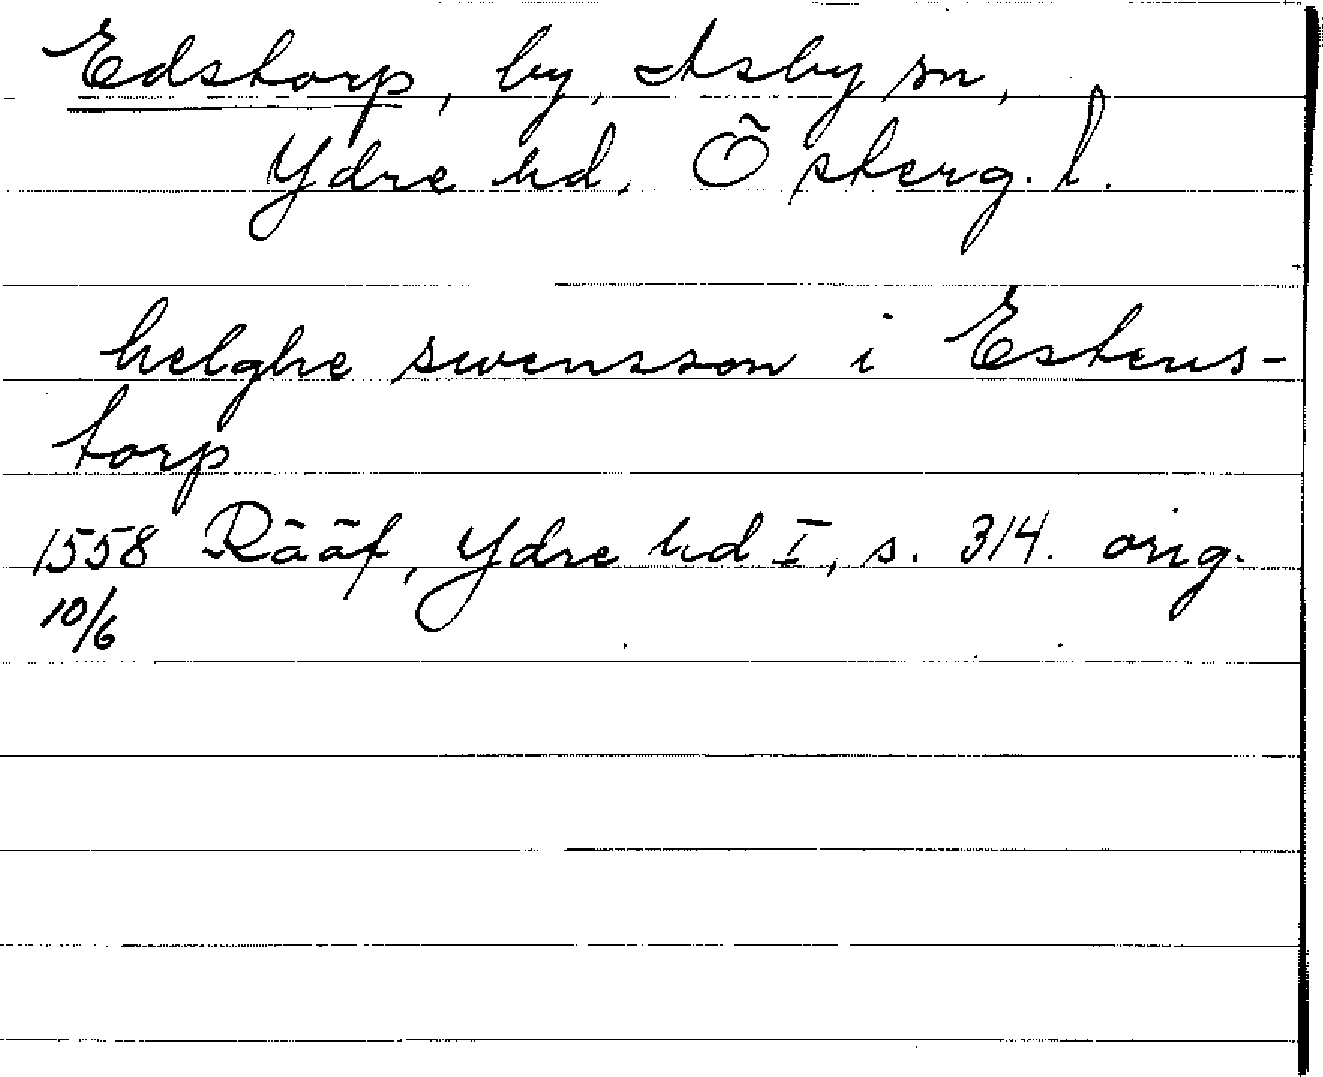 Edstorp, by, Asby sn,
Ydre hd. Österg. l.
helghe swensson i Esterns-
torp
1558 Rääf, Ydre hd I, s. 314. orig.
10/6